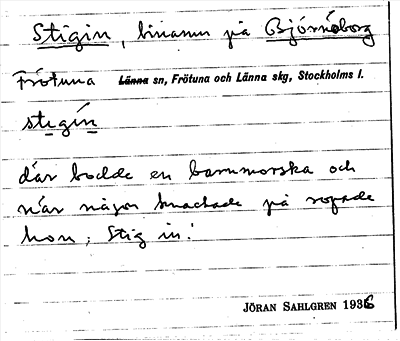 Stigin, binamn på Björnöborg
Frötuna Länna sn, Frötuna och Länna skg, Stockholms l.
stigin
där bodde en barnmorska och
när någon knackade på ropade
hon: Stig in!
JÖRAN SAHLGREN 1936